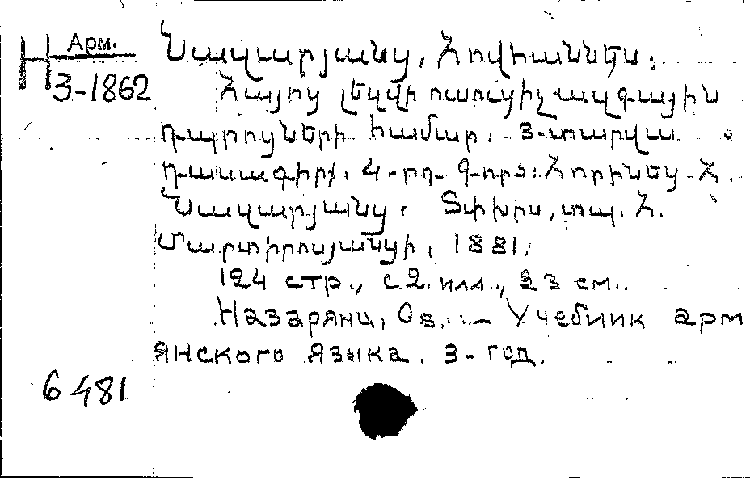 Арм.
Н
Նազարյանց, Հովհաննես:
3-1862
Հայոց լեզվի ուսուցիչ ազգային
դպրոցների համար. 3-տարվա
դասագիրք. 4-րդ. գործ: Հորինեց Հ.
Նազարյանց. Տփխիս, տպ. Հ.
Մարտիրոսյանցի, 1881.
124 стр., с 2 илл., 23 см.
Назарянц, Ов. — Учебник арм
янского языка. 3-год.
6481